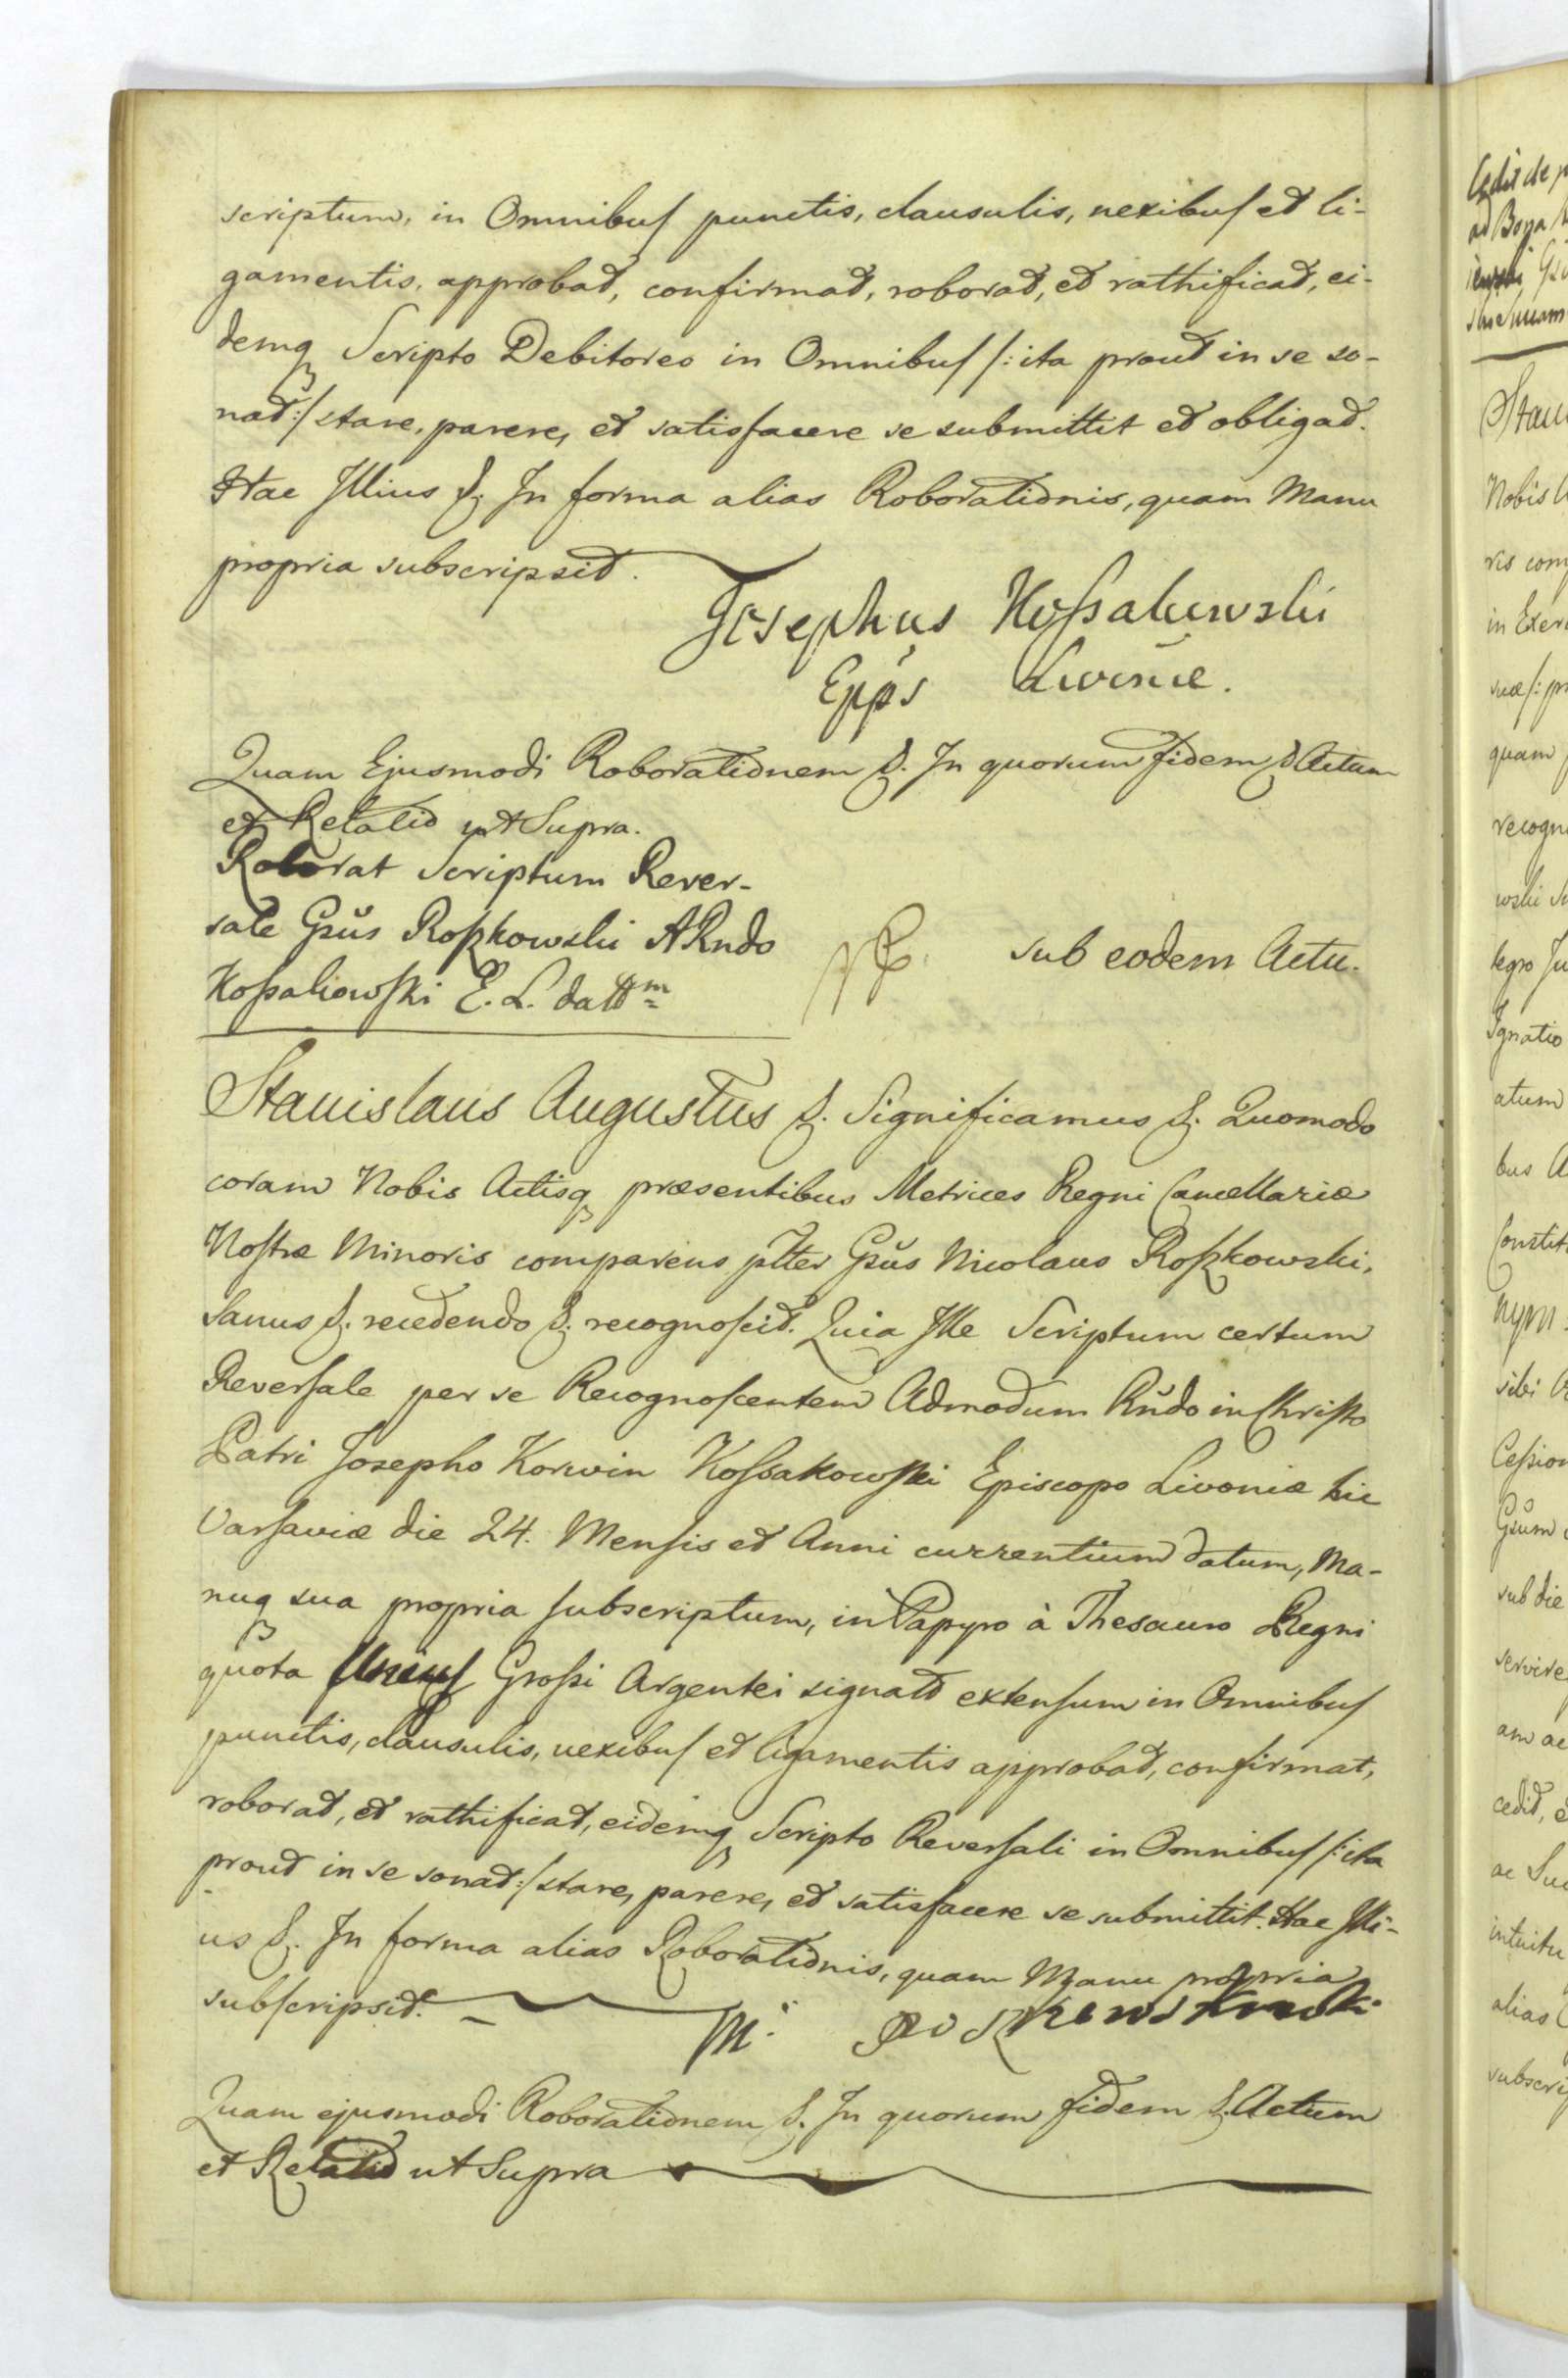 scriptum, in Omnibus punctis, clausulis, nexibus et li-
gamentis, approbat, confirmat, roborat, et rathificat, ei-
demq Scripto Debitoreo in Omnibus /: ita prout in se so-
nat :/ stare, parere, et satisfacere se submittit et obligat.
Hac Illius &. In forma alias Roborationis, quam Manu
propria subscripsit.
Josephus Kossakowski
Epp̃s Livoniæ.
Quam Ejusmodi Roborationem &. In quorum fidem & Actum
et Relatio ut Supra.
Roborat Scriptum Rever-
sale Gsũs Roszkowski ARndo
Kossakowski E. L. datt͠m
sub eodem Actu.
Stanislaus Augustus &. Significamus &. Quomodo
coram Nobis Actisq præsentibus Metrices Regni Cancellariæ
Nostræ Minoris comparens plter Gsũs Nicolaus Roszkowski,
Sanus &. recedendo &. recognoscit. Quia Ille Scriptum certum
Reversale per se Recognoscentem Admodum Rñdo in Christo
Patri Josepho Korwin Kossakowski Episcopo Livoniæ hic
Varsaviæ die 24. Mensis et Anni currentium datum, Ma-
nuq sua propria subscriptum, in Papyro à Thesauro Regni
quota Unius Grossi Argentei signato extensum in Omnibus
punctis, clausulis, nexibus et ligamentis approbat, confirmat,
roborat, et rathificat, eidemq Scripto Reversali in Omnibus /: ita
prout in se sonat :/ stare, parere, et satisfacere se submittit. Hac Illi-
us &. In forma alias Roborationis, quam Manu propria
subscripsit.
M.
Quam ejusmodi Roborationem &. In quorum fidem & Actum
et Relatio ut Supra
Stan
Nobis
in Exer
quam
recogn
Ignatio
atum
bus
Constit
sibi
Cession
Gsũm
sub die
servire
am ac
cedit, e
intuitu
alias
subscri